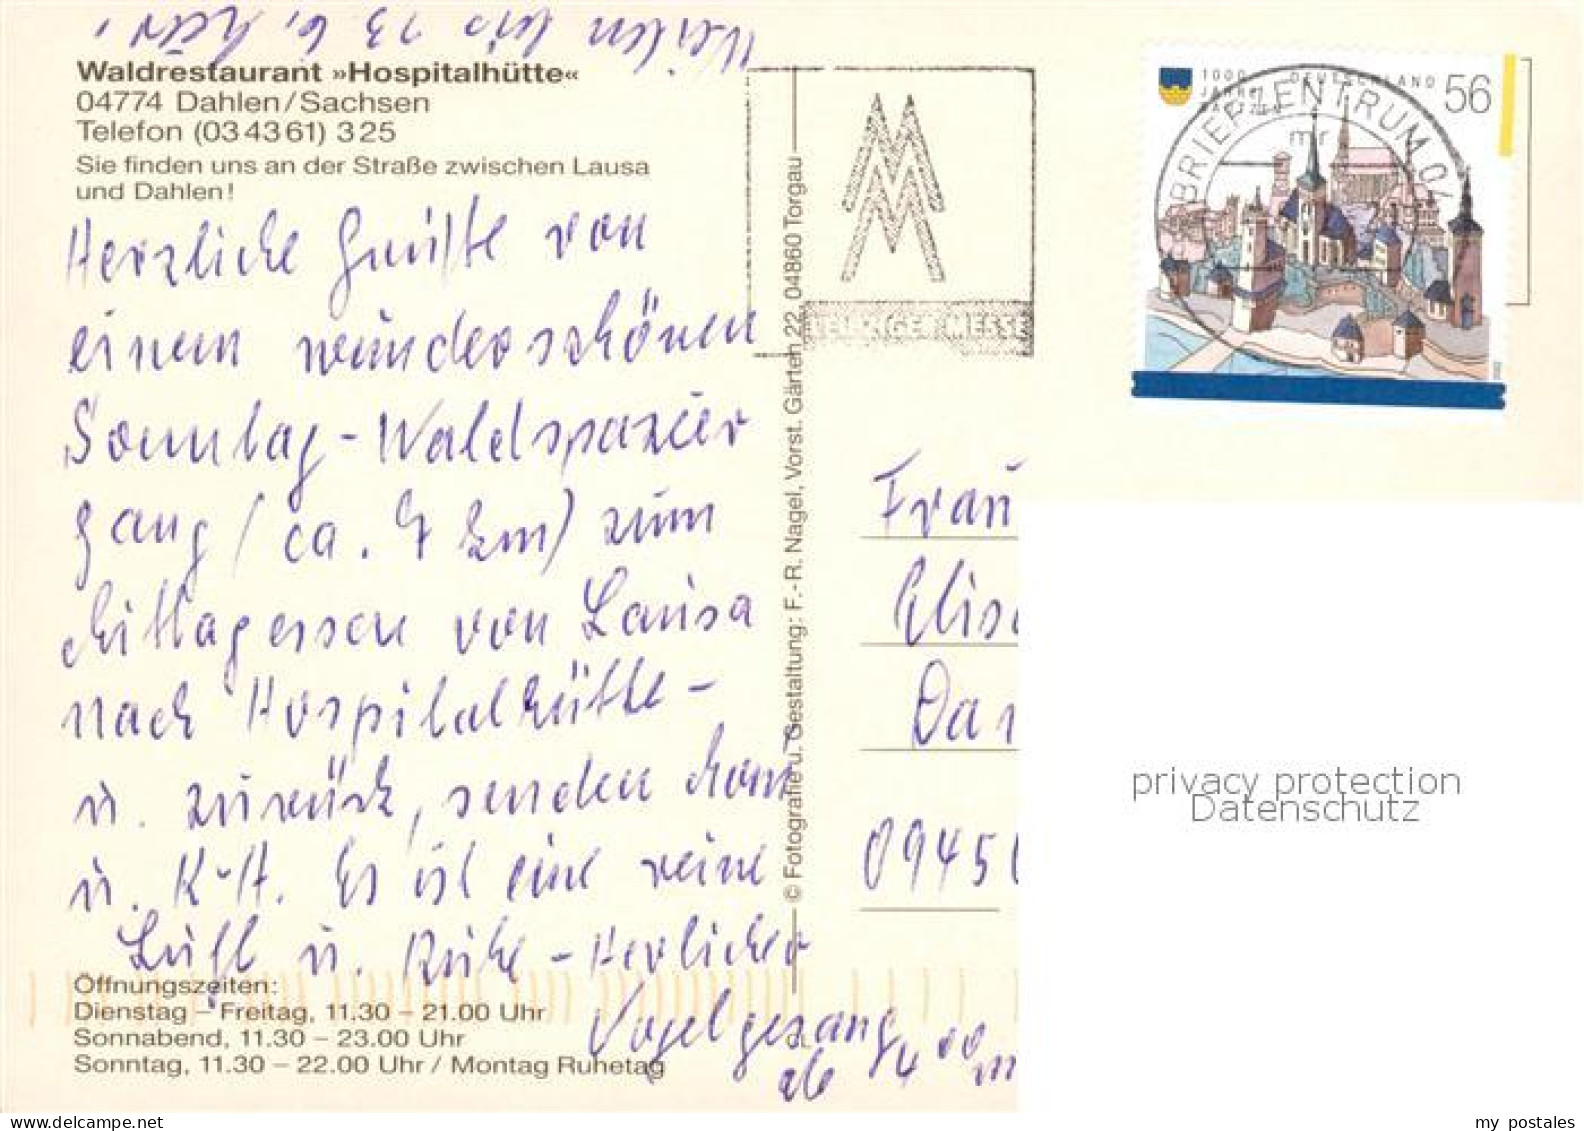 Weilen bis 23. 6. hier,
Waldrestaurant »Hospitalhütte«
04774 Dahlen/Sachsen
Telefon (03 43 61) 3 25
Sie finden uns an der Straße zwischen Lausa
und Dahlen!
Herzliche Grüße von
einem wunderschönen
Sonntag-Waldspazier
gang (ca. 7 km) zum
Mittagessen von Lausa
nach Hospitalhütte -
u. zurück, senden
u. Es ist eine reine
Luft u. Ruhe - Herrlicher
Vogelgesang
ab 4 00
Öffnungszeiten:
Dienstag – Freitag, 11.30 – 21.00 Uhr
Sonnabend, 11.30 – 23.00 Uhr
Sonntag, 11.30 – 22.00 Uhr / Montag Ruhetag
© Fotografie u. Gestaltung: F.-R. Nagel, Vorst. Gärten 22, 04860 Torgau
CL
LEIPZIGER MESSE
1000 JAHRE BAUTZEN
DEUTSCHLAND 56
BRIEFZENTRUM 04
Frau
Elis
Dar
0945
privacy protection
Datenschutz
my postales